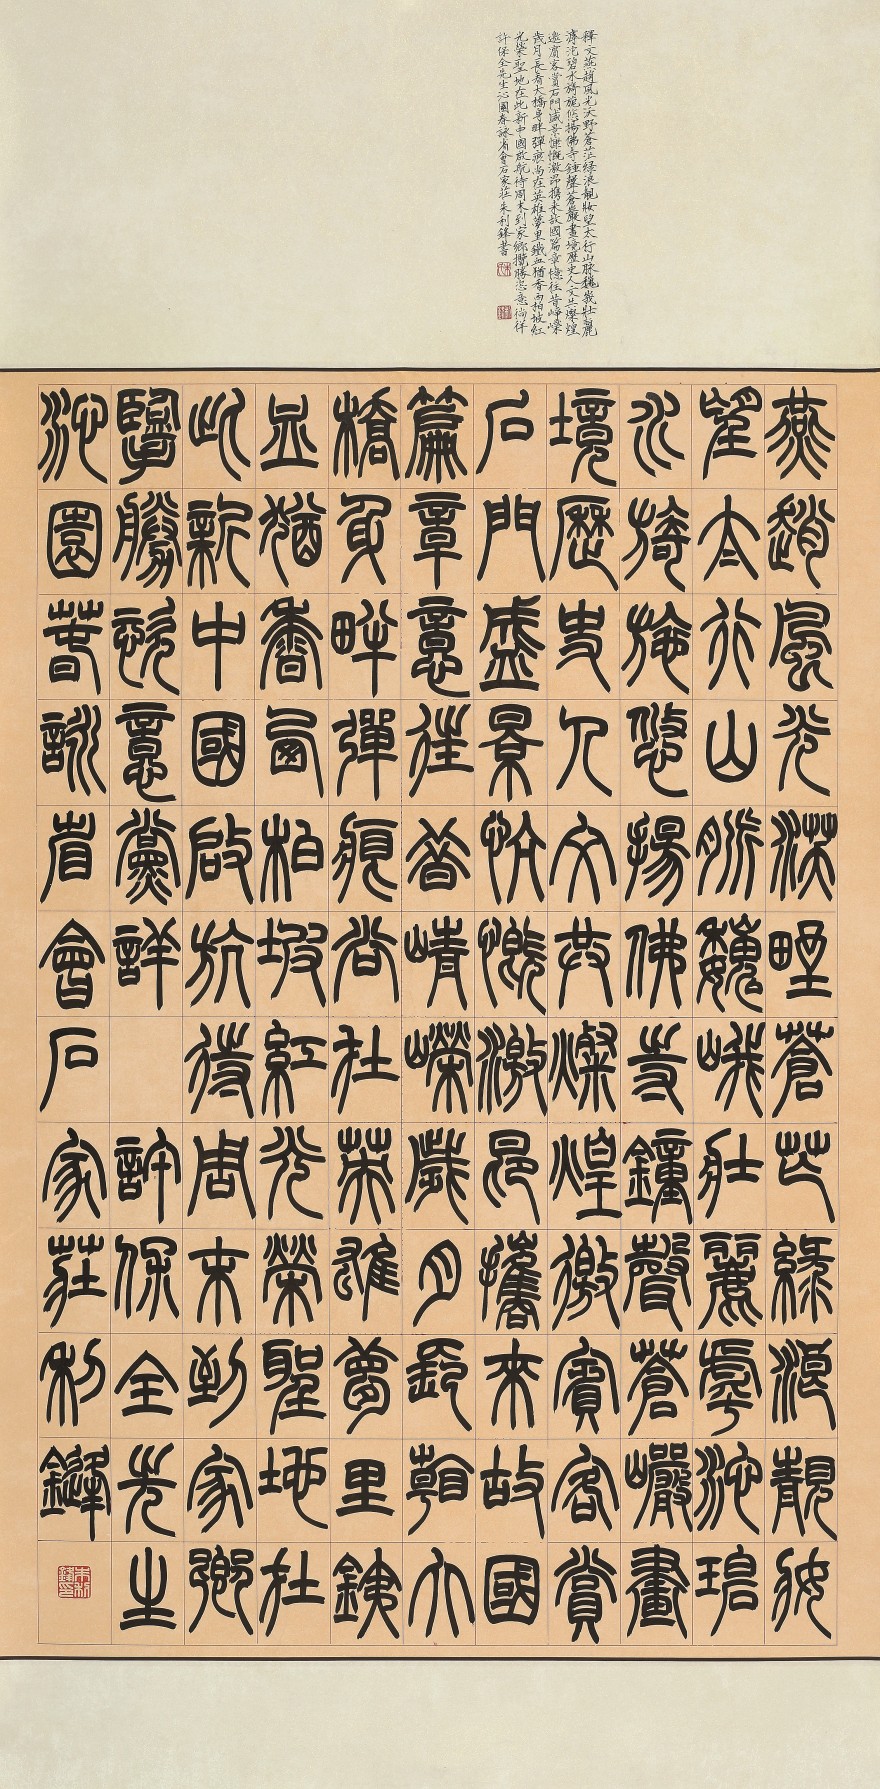 釋文燕趙風光沃野蒼茫綠浪靚妝望太行山脉巍峨壯麗
滹沱碧水旖旎悠揚佛寺鐘聲蒼巖畫境歷史人文共燦煌
邀賓客賞石門盛景慷慨激昂携来故國篇章憶往昔崢嶸
歲月長看大橋身畔彈痕尚在英雄夢里鐵血猶香西柏坡紅
光榮聖地在此新中國啟航待周末到家鄉攬勝恣意徜徉
許保全先生沁園春詠省會石家莊朱利鋒書
燕趙風光沃野蒼茫綠浪靚妝
望太行山脈巍峨壯麗滹沱碧
水旖旎悠揚佛寺鐘聲蒼巖畫
境歷史人文共燦煌邀賓客賞
石門盛景慷慨激昂攜來故國
篇章意往昔崢嶸歲月長看大
橋身畔彈痕尚在英雄夢里鐵
血猶香西柏坡紅光榮聖地在
此新中國啟航待周末到家鄉
攬勝恣意徜徉 許保全先生
沁園春詠省會石家莊利鋒